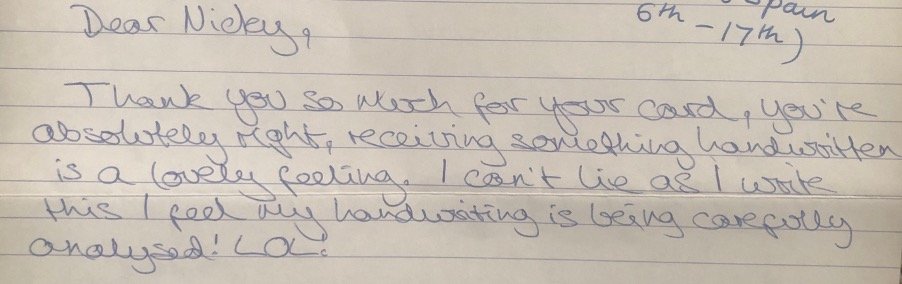 Spain
6th
-17th)
Dear Nicky,
Thank you so much for your card, you're
absolutely right, receiving something handwritten
is a lovely feeling. I can't lie as I write
this I feel my handwriting is being carefully
analysed! LOL!